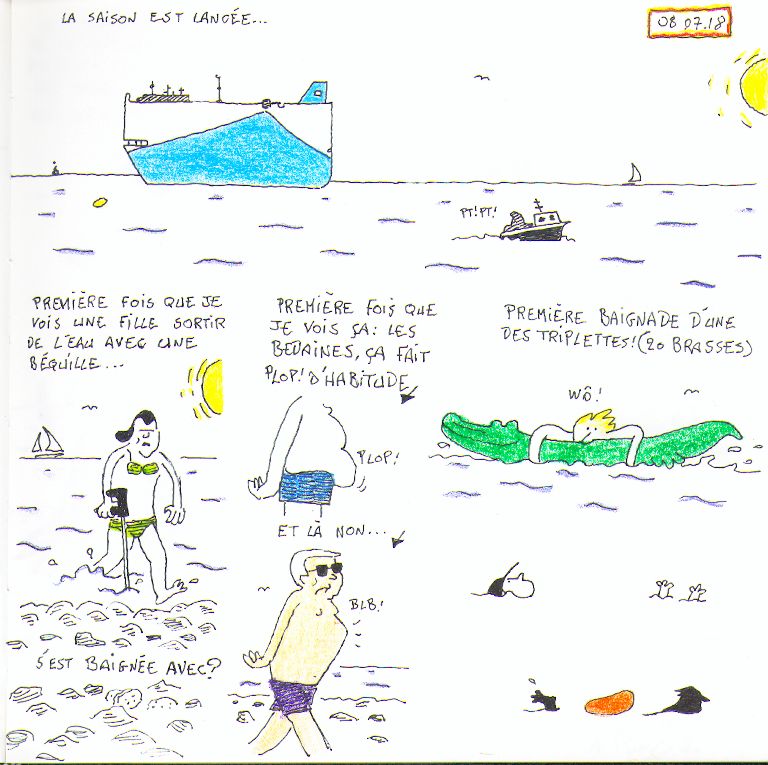 LA SAISON EST LANCÉE...
08 07.18
PT!PT!
PREMIÈRE FOIS QUE JE
VOIS UNE FILLE SORTIR
DE L'EAU AVEC UNE
BÉQUILLE...
S'EST BAIGNÉE AVEC?
PREMIÈRE FOIS QUE
JE VOIS ÇA: LES
BEDAINES, ÇA FAIT
PLOP! D'HABITUDE
PLOP!
ET LÀ NON...
BLB!
PREMIÈRE BAIGNADE D'UNE
DES TRIPLETTES! (20 BRASSES)
WÔ!